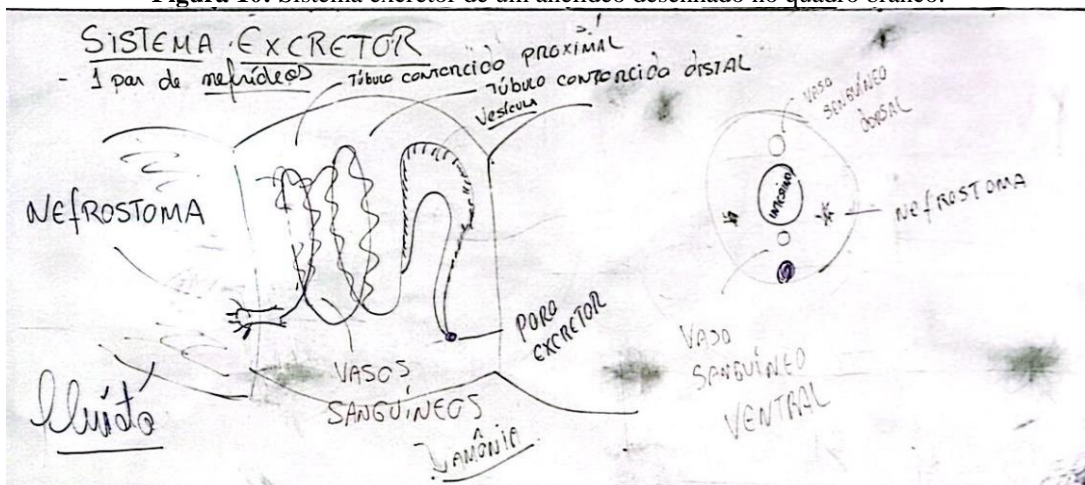 Figura 10. Sistema excretor de um anelídeo desenhado no quadro branco.
SISTEMA EXCRETOR
- 1 par de nefrídeos
Túbulo contorcido proximal
Túbulo contorcido distal
Vesícula
NEFROSTOMA
VASOS
SANGUÍNEOS
PORO
EXCRETOR
AMÔNIA
fluido
VASO
SANGUÍNEO
DORSAL
INTESTINO
NEFROSTOMA
VASO
SANGUÍNEO
VENTRAL